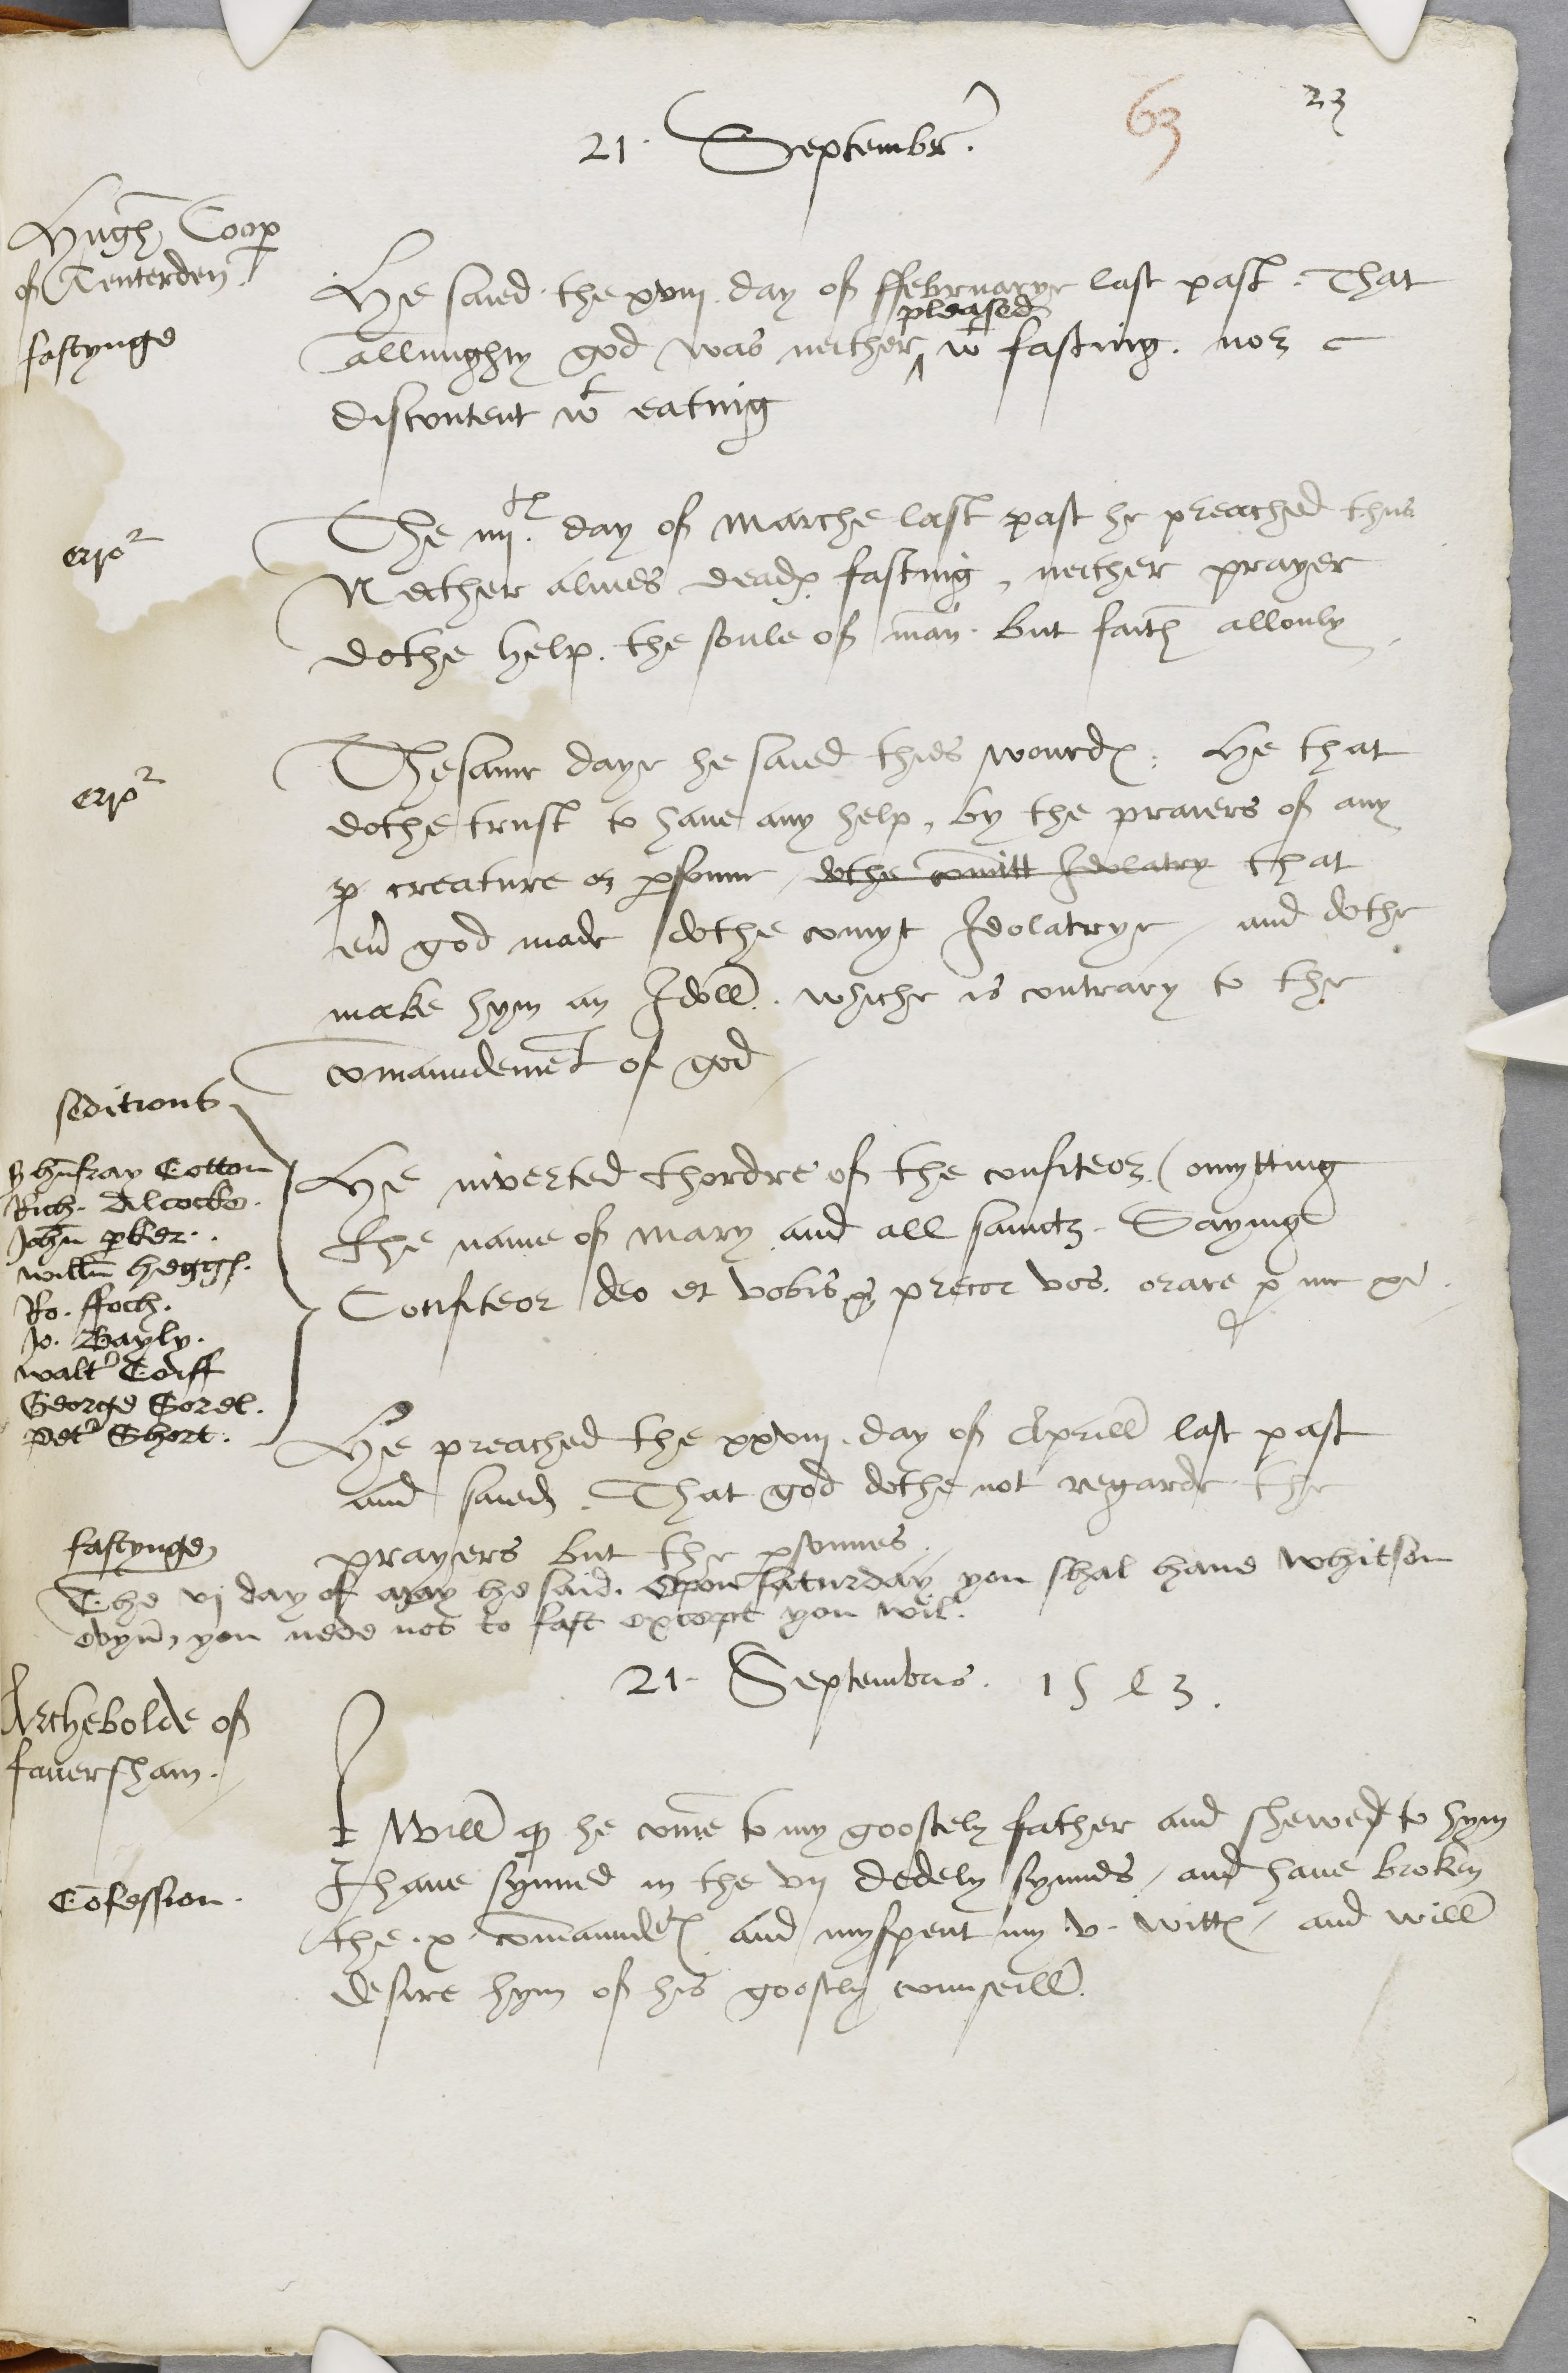 23
63
21. Septembr.
Hugh Coop
of Tenterden.
fastynge
He saied the xviij day of ffebruarye last past. That
pleased
allmighty god was neither ^ wt fasting. nor
discontent wt eating
erro2
The iiij. day of Marche last past he preached thus
Neither almes deades fasting, neither prayer
dothe help. the soule of man. but faith allonly
erro2
Thesame daye he saied thies wourdes. He that
dothe trust to haue any help, by the praiers of any
creature or psonne, dothe comitt Idolatry that
eu god made dothe comyt Idolatrye, and dothe
make hym an Idoll. whiche is contrary to the
comaundement of god
seditious
Humfray Cotton
Rich. Alcocke.
John pker.
willm hegges.
Ro. ffoch.
Jo. Bayly.
walt Coiff
George Sorel.
Pet Short.
He inverted thordre of the confiteor, (omytting
the name of Mary and all saincts. Saying
Confiteor deo et vobis precor vos. orare p me
He preached the xxviij. day of Aprill last past
and saied. That god dothe not regarde the
prayers but the psonnes.
fastynge
The vj day of may he said. Vpon saturday you shal haue whitson
evyn, you nede not to fast except you wil.
21. Septembris. 1543.
Archebolde of
faversham.
I Will q he come to my goostely father and shewe to hym
Confession.
I haue synned in the vij dedely synnes, and haue broken
the .x. comaundes and myspent my .v. wittes, and will
desire hym of his goostly counseill.